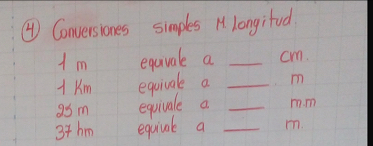 ④ Conversiones simples M Longitud.
1 m equivale a ___ cm.
1 Km equivale a ___ m
25 m equivale a ___ mm
37 hm equivale a ___ m.